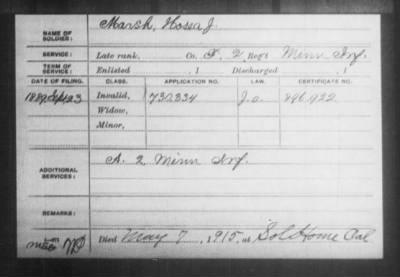 NAME OF SOLDIER: Marsh, Hossa J.
SERVICE: Late rank, Co. F, 2 Reg't Minn Inf.
TERM OF SERVICE: Enlisted , 1 Discharged , 1
DATE OF FILING. CLASS. APPLICATION NO. LAW. CERTIFICATE NO.
1889 Sept 23 Invalid, 730334 J.o. 896.922
Widow,
Minor,
ADDITIONAL SERVICES: A. 2 Minn Inf.
REMARKS:
Died May 7, 1915, at Sol Home Cal